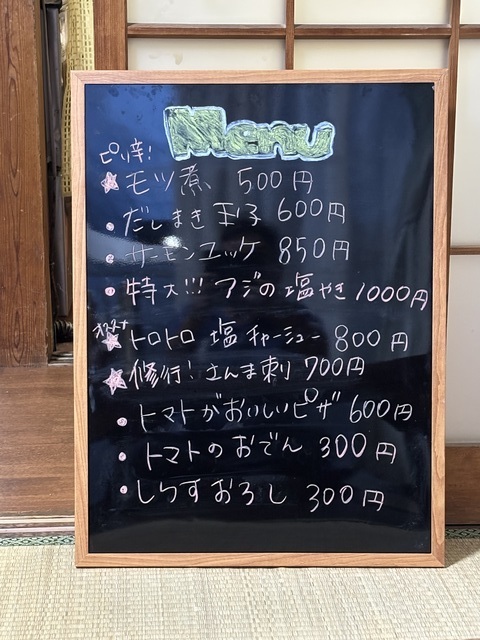 Menu
ピリ辛!
★モツ煮 500円
・だしまき玉子 600円
・サーモンユッケ 850円
・特大!!! アジの塩やき 1000円
オススメ
★トロトロ 塩チャーシュー 800円
★修行! さんま刺 700円
・トマトがおいしいピザ 600円
・トマトのおでん 300円
・しらすおろし 300円